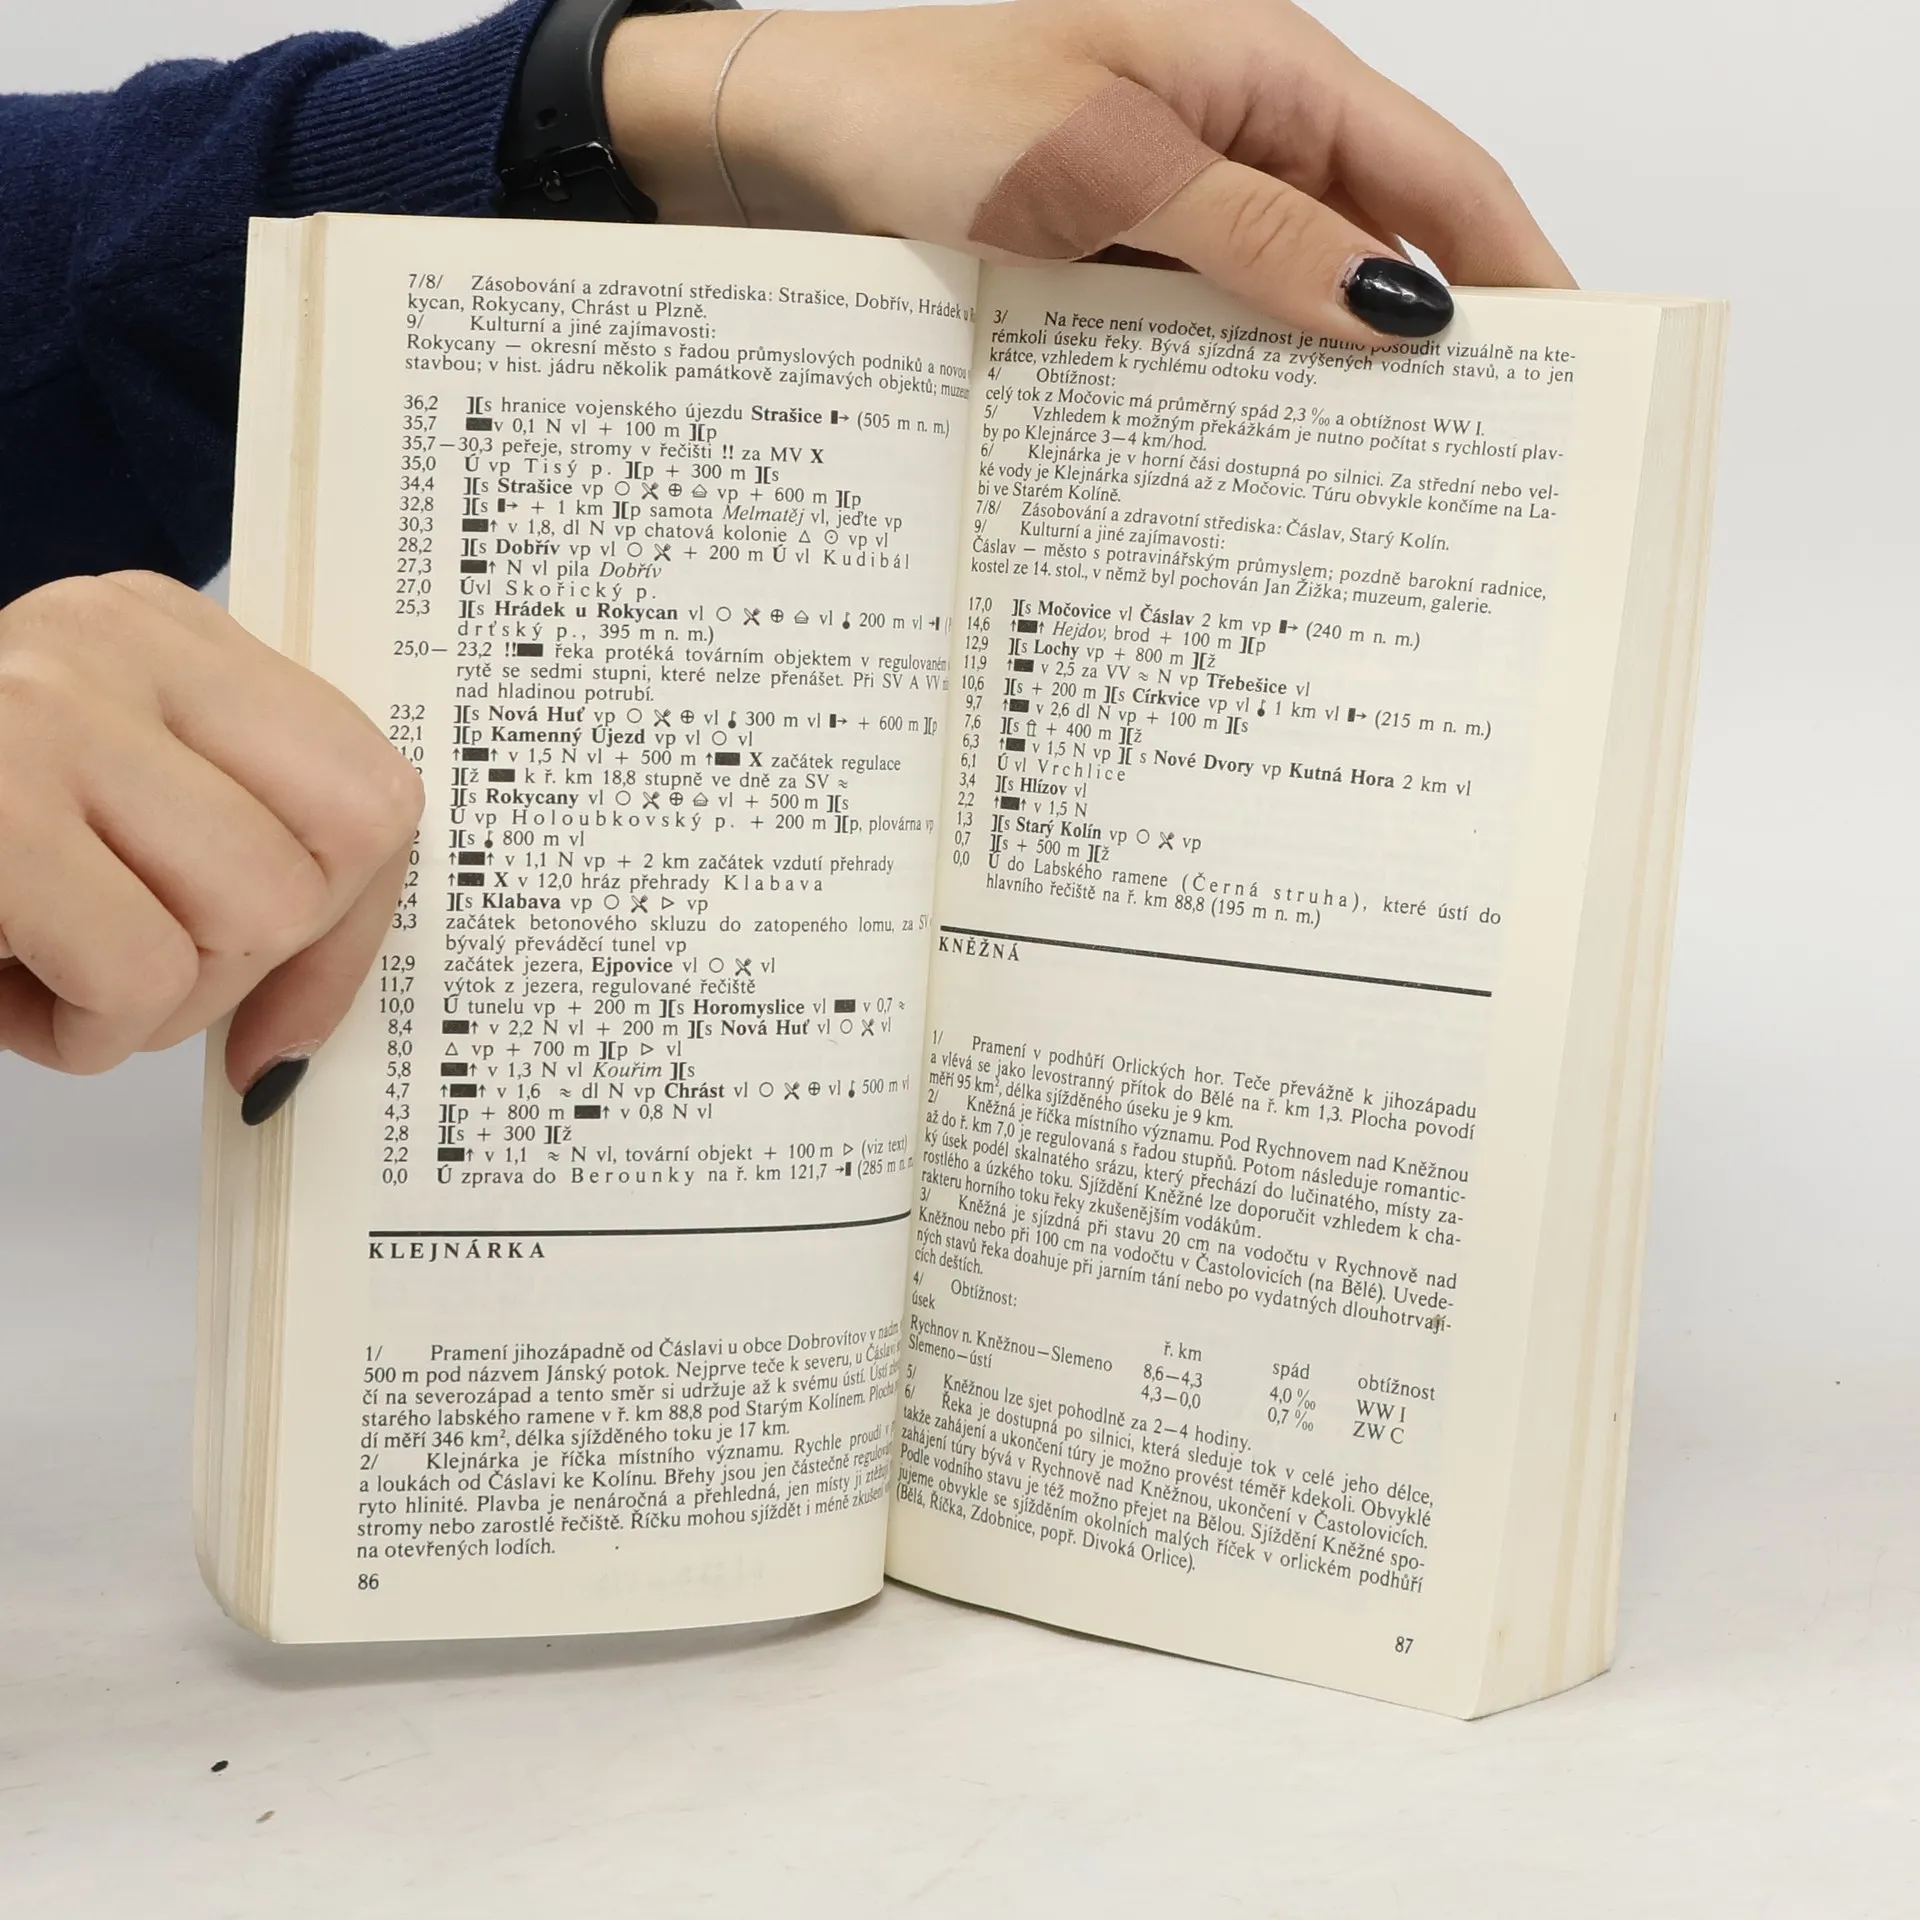 7/8/ Zásobování a zdravotní střediska: Strašice, Dobřív, Hrádek u
kycan, Rokycany, Chrást u Plzně.
9/ Kulturní a jiné zajímavosti:
Rokycany — okresní město s řadou průmyslových podniků a novou
stavbou; v hist. jádru několik památkově zajímavých objektů;
36,2 ][s hranice vojenského újezdu Strašice ▮→ (505 m n. m.)
35,7 ■v 0,1 N vl + 100 m ][p
35,7—30,3 peřeje, stromy v řečišti !! za MV X
35,0 Ú vp Tisý p. ][p + 300 m ][s
34,4 ][s Strašice vp ○ ⊕ vp + 600 m ][p
32,8 ][s ▮→ + 1 km ][p samota Melmatěj vl, jeďte vp
30,3 ■↑ v 1,8, dl N vp chatová kolonie △ ⊙ vp vl
28,2 ][s Dobřív vp vl ○ + 200 m Ú vl Kudibál
27,3 ■↑ N vl pila Dobřív
27,0 Úvl Skořický p.
25,3 ][s Hrádek u Rokycan vl ○ ⊕ vl 200 m vl →▮
drťský p., 395 m n. m.)
25,0— 23,2 !!■ řeka protéká továrním objektem v regulovaném
rytě se sedmi stupni, které nelze přenášet. Při SV A VV
nad hladinou potrubí.
23,2 ][s Nová Huť vp ○ ⊕ vl 300 m vl ▮→ + 600 m ][p
22,1 ][p Kamenný Újezd vp vl ○ vl
↑■↑ v 1,5 N vl + 500 m ↑■ X začátek regulace
][ž ■ k ř. km 18,8 stupně ve dně za SV ≈
][s Rokycany vl ○ ⊕ vl + 500 m ][s
Ú vp Holoubkovský p. + 200 m ][p, plovárna vp
][s 800 m vl
↑■↑ v 1,1 N vp + 2 km začátek vzdutí přehrady
↑■ X v 12,0 hráz přehrady Klabava
][s Klabava vp ○ ▷ vp
3,3 začátek betonového skluzu do zatopeného lomu, za SV
bývalý převáděcí tunel vp
12,9 začátek jezera, Ejpovice vl ○ vl
11,7 výtok z jezera, regulované řečiště
10,0 Ú tunelu vp + 200 m ][s Horomyslice vl ■ v 0,7 ≈
8,4 ■↑ v 2,2 N vl + 200 m ][s Nová Huť vl ○ vl
8,0 △ vp + 700 m ][p ▷ vl
5,8 ■↑ v 1,3 N vl Kouřim ][s
4,7 ↑■↑ v 1,6 ≈ dl N vp Chrást vl ○ ⊕ vl 500 m vl
4,3 ][p + 800 m ■↑ v 0,8 N vl
2,8 ][s + 300 ][ž
2,2 ■↑ v 1,1 ≈ N vl, tovární objekt + 100 m ▷ (viz text)
0,0 Ú zprava do Berounky na ř. km 121,7 →▮ (285 m n.
KLEJNÁRKA
1/ Pramení jihozápadně od Čáslavi u obce Dobrovítov v
500 m pod názvem Jánský potok. Nejprve teče k severu, u Čáslavi
čí na severozápad a tento směr si udržuje až k svému ústí. Ústí
starého labského ramene v ř. km 88,8 pod Starým Kolínem.
dí měří 346 km², délka sjížděného toku je 17 km.
2/ Klejnárka je říčka místního významu. Rychle proudí
a loukách od Čáslavi ke Kolínu. Břehy jsou jen částečně
ryto hlinité. Plavba je nenáročná a přehledná, jen místy ji
stromy nebo zarostlé řečiště. Říčku mohou sjíždět i méně zkušení
na otevřených lodích.
86
3/ Na řece není vodočet, sjízdnost je nutno posoudit vizuálně na kte-
rémkoli úseku řeky. Bývá sjízdná za zvýšených vodních stavů, a to jen
krátce, vzhledem k rychlému odtoku vody.
4/ Obtížnost:
celý tok z Močovic má průměrný spád 2,3 ‰ a obtížnost WW I.
5/ Vzhledem k možným překážkám je nutno počítat s rychlostí plav-
by po Klejnárce 3—4 km/hod.
6/ Klejnárka je v horní čási dostupná po silnici. Za střední nebo vel-
ké vody je Klejnárka sjízdná až z Močovic. Túru obvykle končíme na La-
bi ve Starém Kolíně.
7/8/ Zásobování a zdravotní střediska: Čáslav, Starý Kolín.
9/ Kulturní a jiné zajímavosti:
Čáslav — město s potravinářským průmyslem; pozdně barokní radnice,
kostel ze 14. stol., v němž byl pochován Jan Žižka; muzeum, galerie.
17,0 ][s Močovice vl Čáslav 2 km vp ▮→ (240 m n. m.)
14,6 ↑■↑ Hejdov, brod + 100 m ][p
12,9 ][s Lochy vp + 800 m ][ž
11,9 ↑■ v 2,5 za VV ≈ N vp Třebešice vl
10,6 ][s + 200 m ][s Církvice vp vl 1 km vl ▮→ (215 m n. m.)
9,7 ↑■ v 2,6 dl N vp + 100 m ][s
7,6 ][s + 400 m ][ž
6,3 ↑■ v 1,5 N vp ][ s Nové Dvory vp Kutná Hora 2 km vl
6,1 Ú vl Vrchlice
3,4 ][s Hlízov vl
2,2 ↑■↑ v 1,5 N
1,3 ][s Starý Kolín vp ○ vp
0,7 ][s + 500 m ][ž
0,0 Ú do Labského ramene (Černá struha), které ústí do
hlavního řečiště na ř. km 88,8 (195 m n. m.)
KNĚŽNÁ
1/ Pramení v podhůří Orlických hor. Teče převážně k jihozápadu
a vlévá se jako levostranný přítok do Bělé na ř. km 1,3. Plocha povodí
měří 95 km², délka sjížděného úseku je 9 km.
2/ Kněžná je říčka místního významu. Pod Rychnovem nad Kněžnou
až do ř. km 7,0 je regulovaná s řadou stupňů. Potom následuje romantic-
ký úsek podél skalnatého srázu, který přechází do lučinatého, místy za-
rostlého a úzkého toku. Sjíždění Kněžné lze doporučit vzhledem k cha-
rakteru horního toku řeky zkušenějším vodákům.
3/ Kněžná je sjízdná při stavu 20 cm na vodočtu v Rychnově nad
Kněžnou nebo při 100 cm na vodočtu v Častolovicích (na Bělé). Uvede-
ných stavů řeka doahuje při jarním tání nebo po vydatných dlouhotrvají-
cích deštích.
4/ Obtížnost:
úsek ř. km spád obtížnost
Rychnov n. Kněžnou—Slemeno 8,6—4,3 4,0 ‰ WW I
Slemeno—ústí 4,3—0,0 0,7 ‰ ZW C
5/ Kněžnou lze sjet pohodlně za 2—4 hodiny.
6/ Řeka je dostupná po silnici, která sleduje tok v celé jeho délce,
takže zahájení a ukončení túry je možno provést téměř kdekoli. Obvyklé
zahájení túry bývá v Rychnově nad Kněžnou, ukončení v Častolovicích.
Podle vodního stavu je též možno přejet na Bělou. Sjíždění Kněžné spo-
jujeme obvykle se sjížděním okolních malých říček v orlickém podhůří
(Bělá, Říčka, Zdobnice, popř. Divoká Orlice).
87